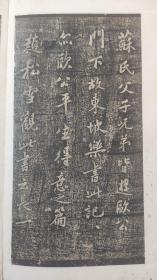 蘇氏父子兄弟皆遊歐公
門下故東坡樂書此記
亦歐公平生得意之篇
趙松雪觀此書云長